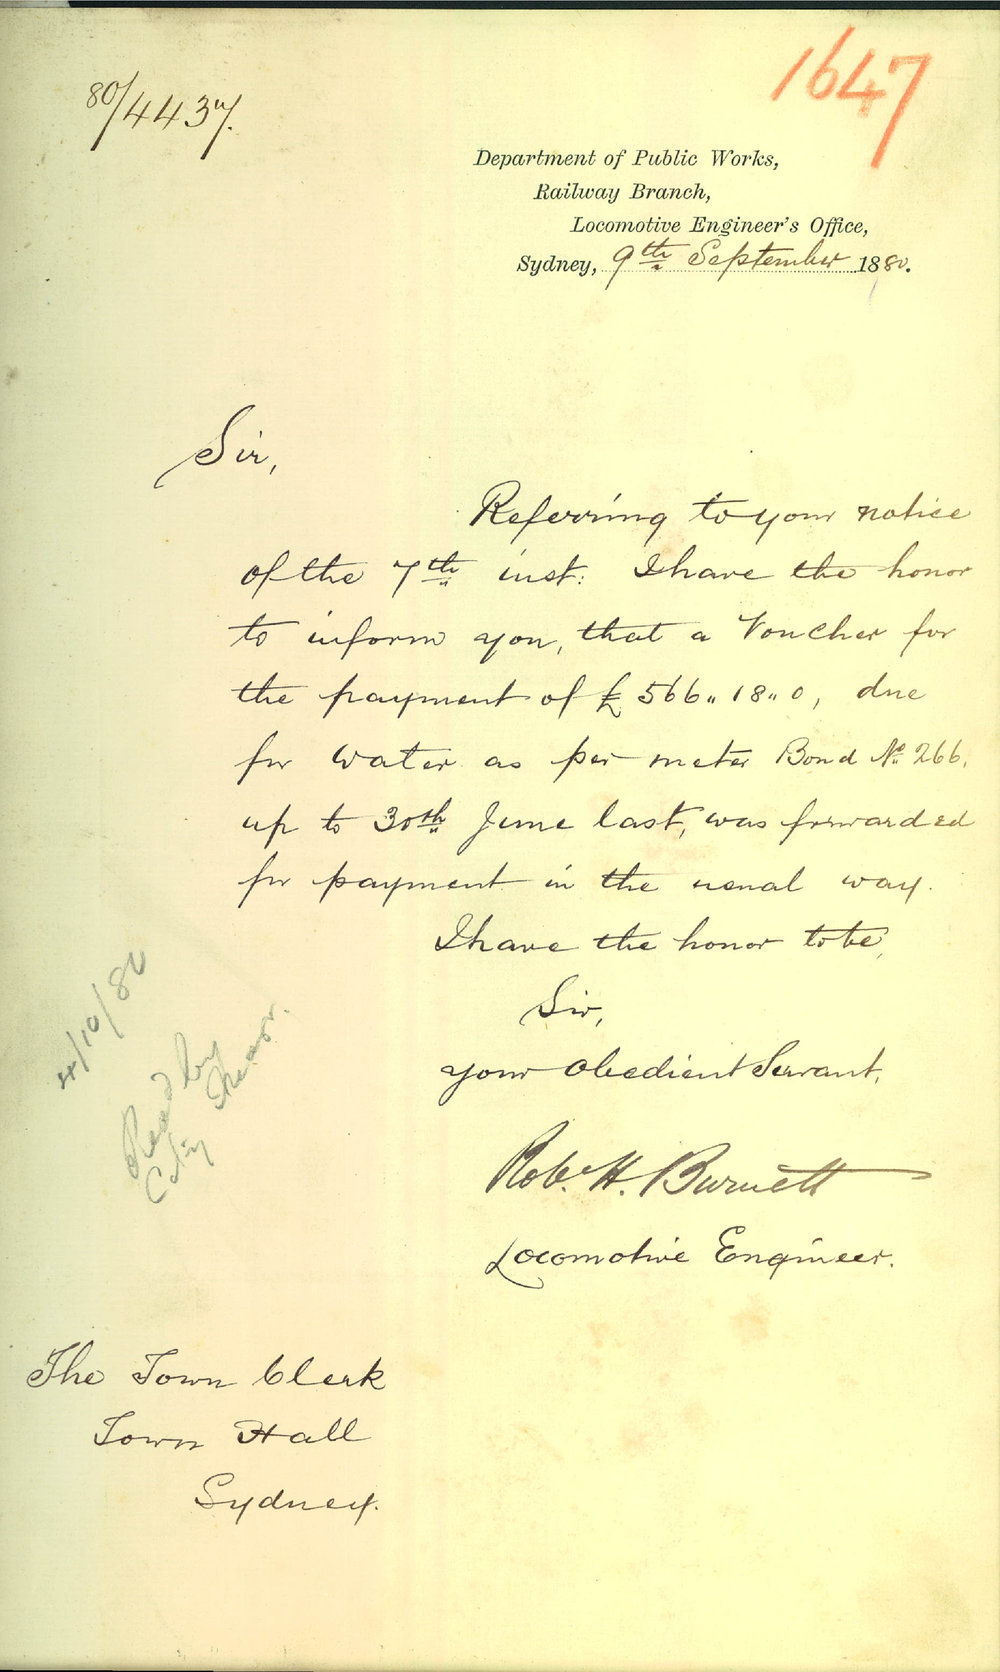 80/4437.
1647
Department of Public Works,
Railway Branch,
Locomotive Engineer's Office,
Sydney, 9th September 1880.
Sir,
Referring to your notice
of the 7th inst: I have the honor
to inform you, that a Voucher for
the payment of £566 " 18 " 0, due
for water as per meter Bond No. 266.
up to 30th June last, was forwarded
for payment in the usual way.
I have the honor to be,
Sir,
your Obedient Servant,
Rob. H. Burnett
Locomotive Engineer.
4/10/80
Read by
City Treasr.
The Town Clerk
Town Hall
Sydney.